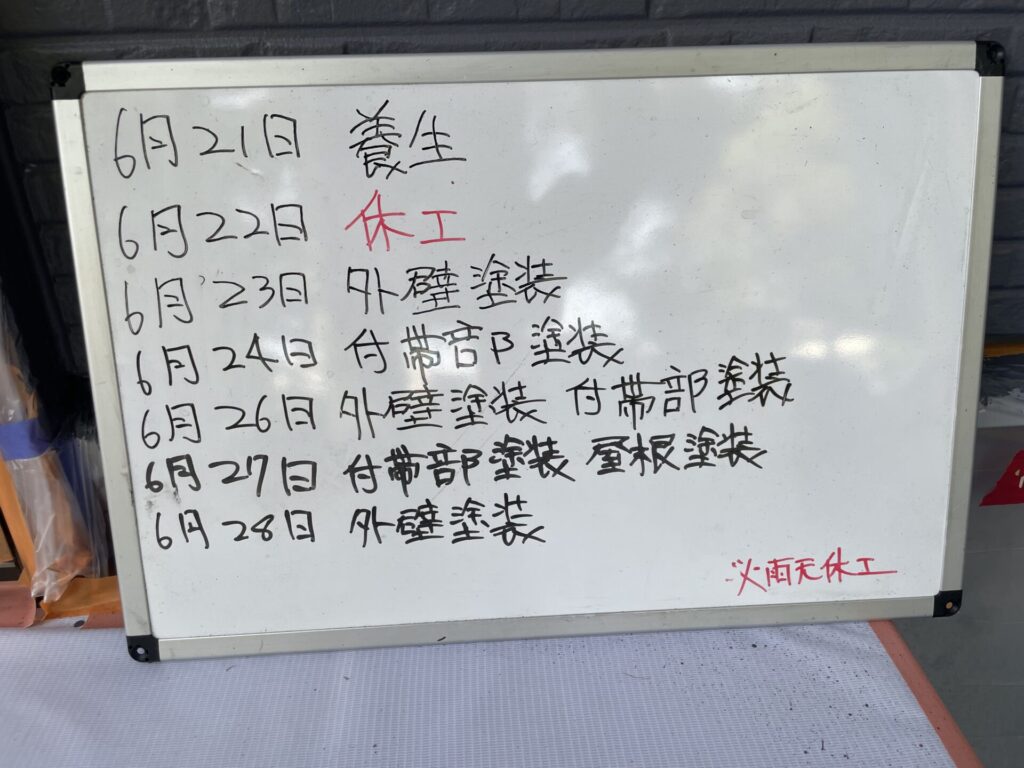 6月21日 養生
6月22日 休工
6月23日 外壁塗装
6月24日 付帯部塗装
6月26日 外壁塗装 付帯部塗装
6月27日 付帯部塗装 屋根塗装
6月28日 外壁塗装
※雨天休工